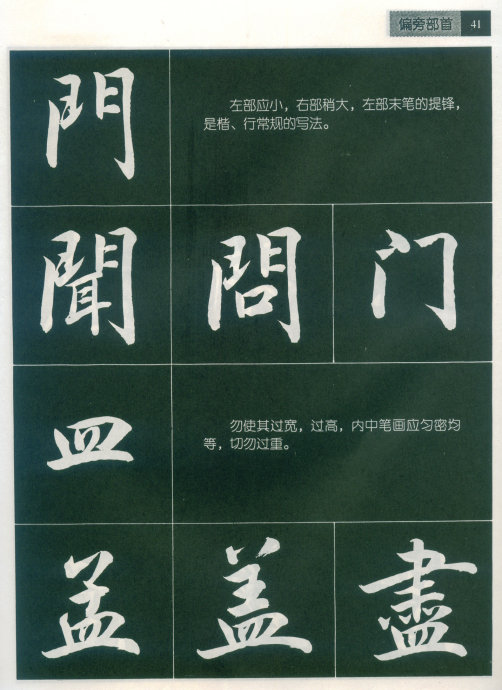 偏旁部首 41
門
左部应小，右部稍大，左部末笔的提锋，
是楷、行常规的写法。
聞 問 门
皿
勿使其过宽，过高，内中笔画应匀密均
等，切勿过重。
孟 盖 盡